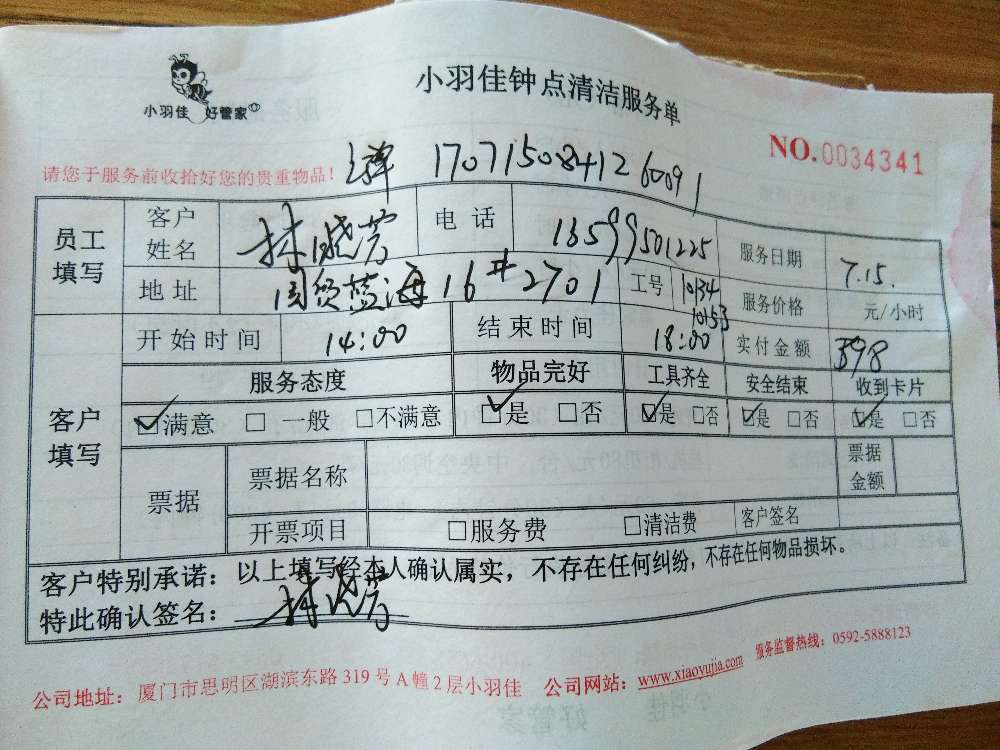 小羽佳 好管家
小羽佳钟点清洁服务单
NO.0034341
请您于服务前收拾好您的贵重物品!
1707150841260091
员工填写 客户姓名 林晓芳 电话 13599501225 服务日期 7.15.
地址 国贸蓝海16#2701 工号 10134 10153 服务价格 元/小时
开始时间 14:00 结束时间 18:00 实付金额 398
客户填写 服务态度 物品完好 工具齐全 安全结束 收到卡片
☑满意 □一般 □不满意 ☑是 □否 ☑是 □否 ☑是 □否 ☑是 □否
票据 票据名称 票据金额
开票项目 □服务费 □清洁费 客户签名
客户特别承诺:以上填写经本人确认属实,不存在任何纠纷,不存在任何物品损坏。
特此确认签名:林晓芳
服务监督热线:0592-5888123
公司地址:厦门市思明区湖滨东路319号A幢2层小羽佳 公司网站:www.xiaoyujia.com